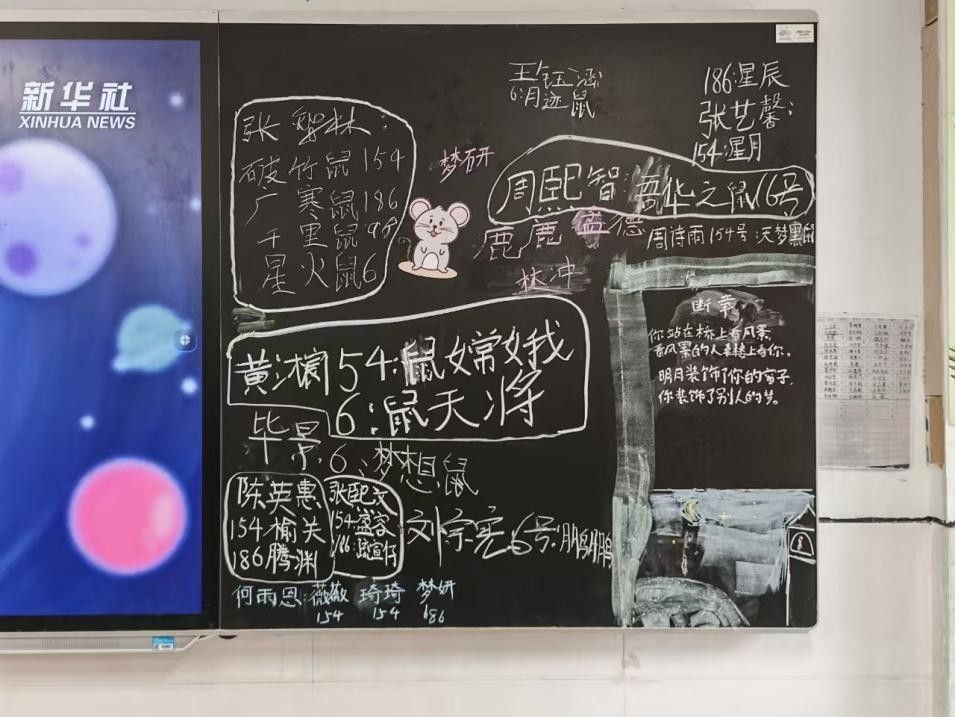 新华社
XINHUA NEWS
王钰涵
6:月迹鼠
186:星辰
张艺馨:
154:星月
张 林:
破竹鼠154
广寒鼠186
千里鼠98
星火鼠6
梦研
周熙智:吾华之鼠16号
鹿鹿 孟德
周诗雨154号:天梦黑鼠
林冲
断章
你站在桥上看风景,
看风景的人在楼上看你。
明月装饰了你的窗子,
你装饰了别人的梦。
黄 54:鼠嫦娥
6:鼠天将
毕景
6:梦想鼠
陈英惠
154榆关
186腾渊
张熙文
154:盛容
186:
刘宗 6号:鹏鹏
何雨恩:薇薇 琦琦 梦妍
154 154 686